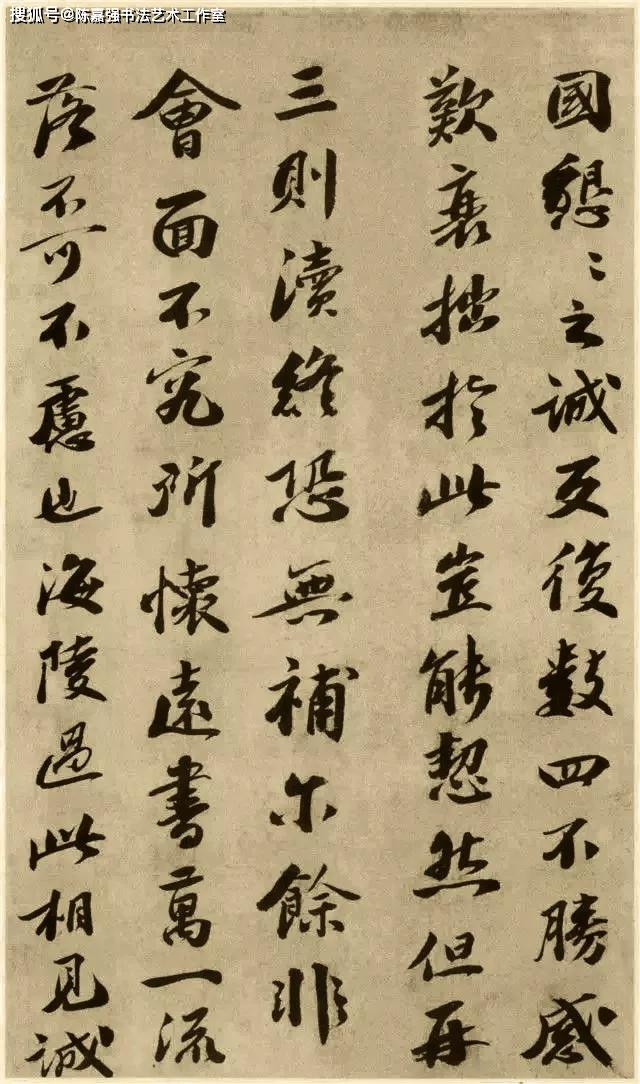 搜狐号@陈嘉强书法艺术工作室
國懇〻之誠反復數四不勝感
歎衰拙於此豈能恝然但再
三則瀆終恐無補尔餘非
會面不究所懷遠書萬一流
落不可不慮也海陵過此相見誠